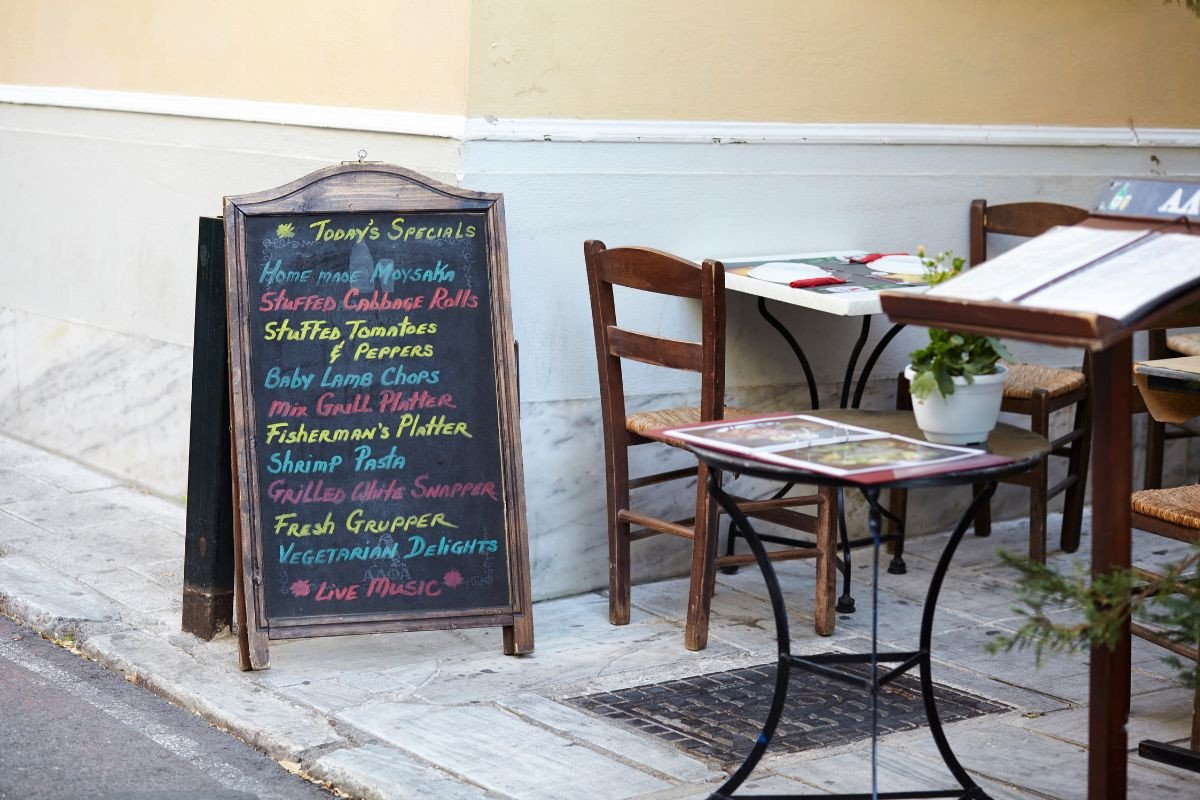 Today's Specials
Home made Moysaka
Stuffed Cabbage Rolls
Stuffed Tomatoes
& Peppers
Baby Lamb Chops
Mix Grill Platter
Fisherman's Platter
Shrimp Pasta
Grilled White Snapper
Fresh Grupper
Vegetarian Delights
Live Music